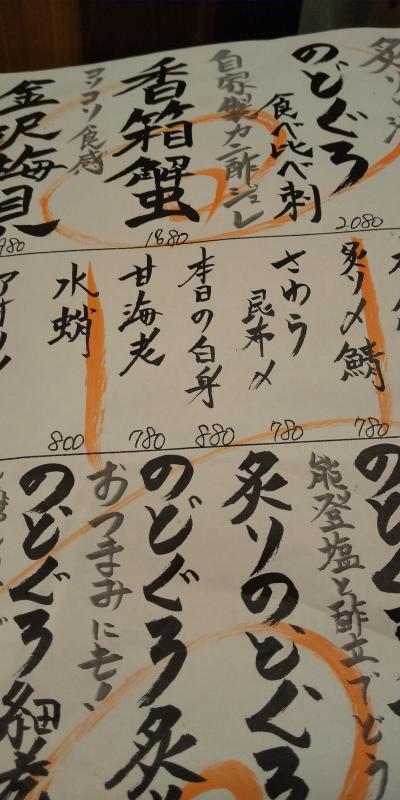 のどぐろ
食べ比べ刺
2080
自家製カニ酢ジュレ
香箱蟹
1880
コソコソ食感
金沢梅貝
980
炙り〆鯖
780
さわら
昆布〆
780
本日の白身
880
甘海老
780
水蛸
800
のど
能登塩と酢立てどう
炙りのどぐろ
のどぐろ炙
おつまみにも!
のどぐろ細巻